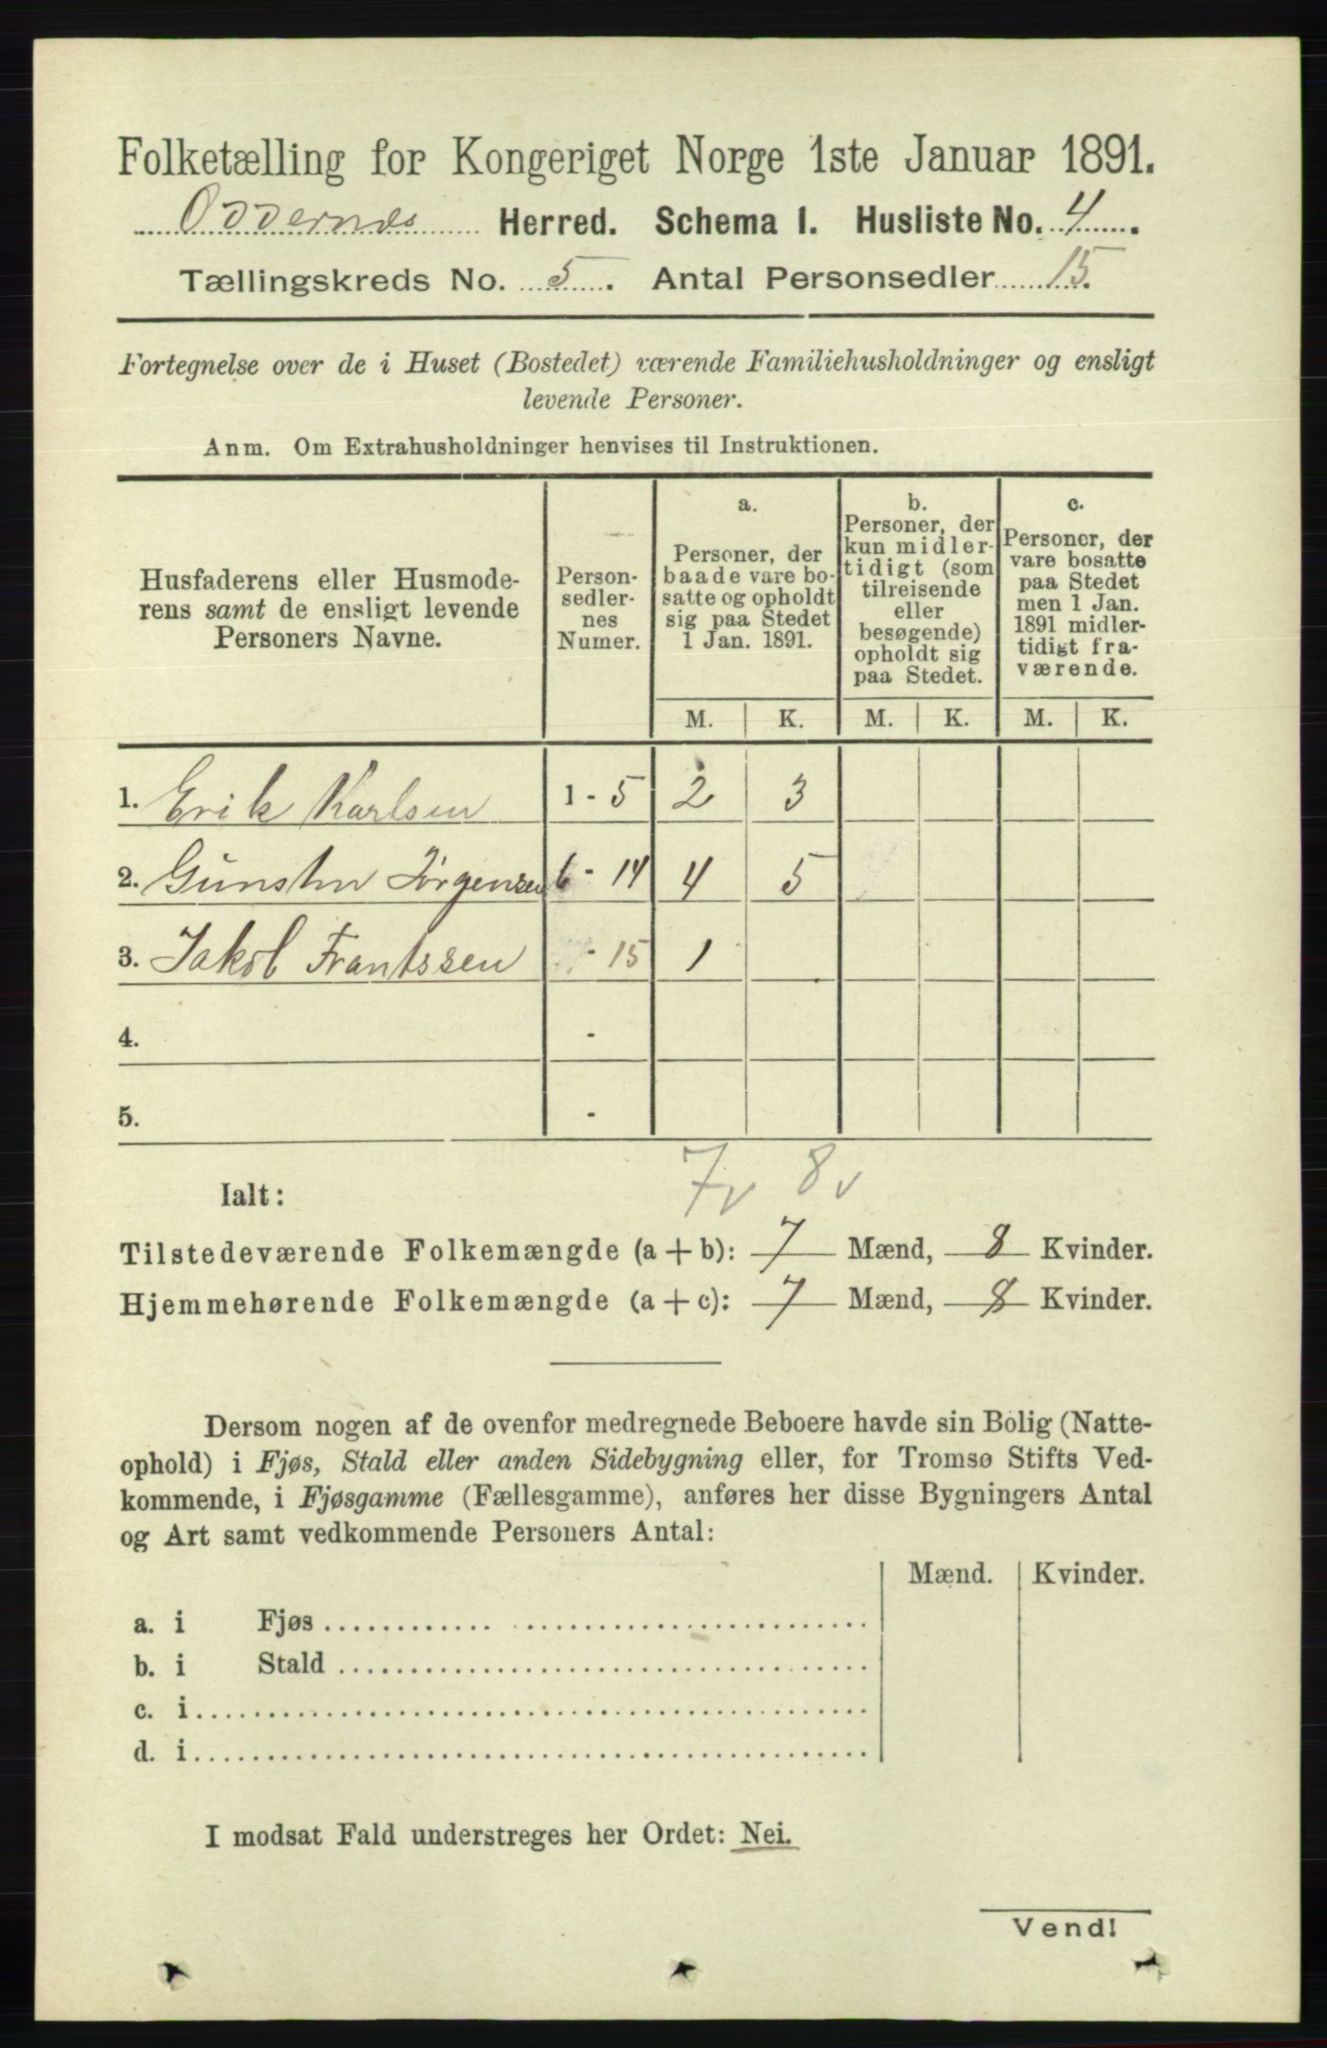 Folketælling for Kongeriget Norge 1ste Januar 1891.
Oddernes Herred. Schema I. Husliste No. 4.
Tællingskreds No. 5. Antal Personsedler 15.
Fortegnelse over de i Huset (Bostedet) værende Familiehusholdninger og ensligt
levende Personer.
Anm. Om Extrahusholdninger henvises til Instruktionen.
Husfaderens eller Husmode-
rens samt de ensligt levende
Personers Navne.
Person-
sedler-
nes
Numer.
a.
Personer, der
baade vare bo-
satte og opholdt
sig paa Stedet
1 Jan. 1891.
b.
Personer, der
kun midler-
tidigt (som
tilreisende
eller
besøgende)
opholdt sig
paa Stedet.
c.
Personer, der
vare bosatte
paa Stedet
men 1 Jan.
1891 midler-
tidigt fra-
værende.
M. K. M. K. M. K.
1. Erik Karlsen 1 - 5 2 3
2. Gunsten Jørgensen 6 - 14 4 5
3. Jakob Frantssen - 15 1
4. -
5. -
7v 8v
Ialt:
Tilstedeværende Folkemængde (a + b): 7 Mænd, 8 Kvinder.
Hjemmehørende Folkemængde (a + c): 7 Mænd, 8 Kvinder.
Dersom nogen af de ovenfor medregnede Beboere havde sin Bolig (Natte-
ophold) i Fjøs, Stald eller anden Sidebygning eller, for Tromsø Stifts Ved-
kommende, i Fjøsgamme (Fællesgamme), anføres her disse Bygningers Antal
og Art samt vedkommende Personers Antal:
Mænd. Kvinder.
a. i Fjøs
b. i Stald
c. i
d. i
I modsat Fald understreges her Ordet: Nei.
Vend!